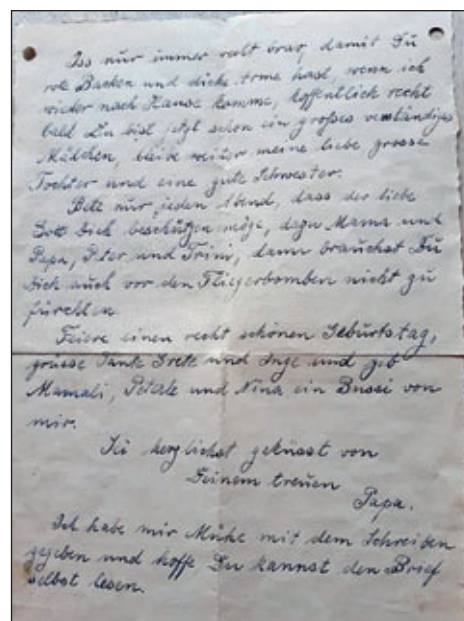 Iss nur immer recht brav, damit Du
rote Backen und dicke Arme hast, wenn ich
wieder nach Hause komme, hoffentlich recht
bald Du bist jetzt schon ein großes verständiges
Mädchen, bleibe weiter meine liebe grosse
Tochter und eine gute Schwester.
Bete nur jeden Abend, dass der liebe
Gott Dich beschützen möge, dazu Mama und
Papa, Peter und Trini, dann brauchst Du
Dich auch vor den Fliegerbomben nicht zu
fürchten
Feiere einen recht schönen Geburtstag,
grüsse Tante Grete und Inge und gib
Mamali, Peterle und Nina ein Bussi von
mir.
herzlichst geküsst von
Deinem treuen
Papa.
Ich habe mir Mühe mit dem Schreiben
gegeben und hoffe Du kannst den Brief
selbst lesen.